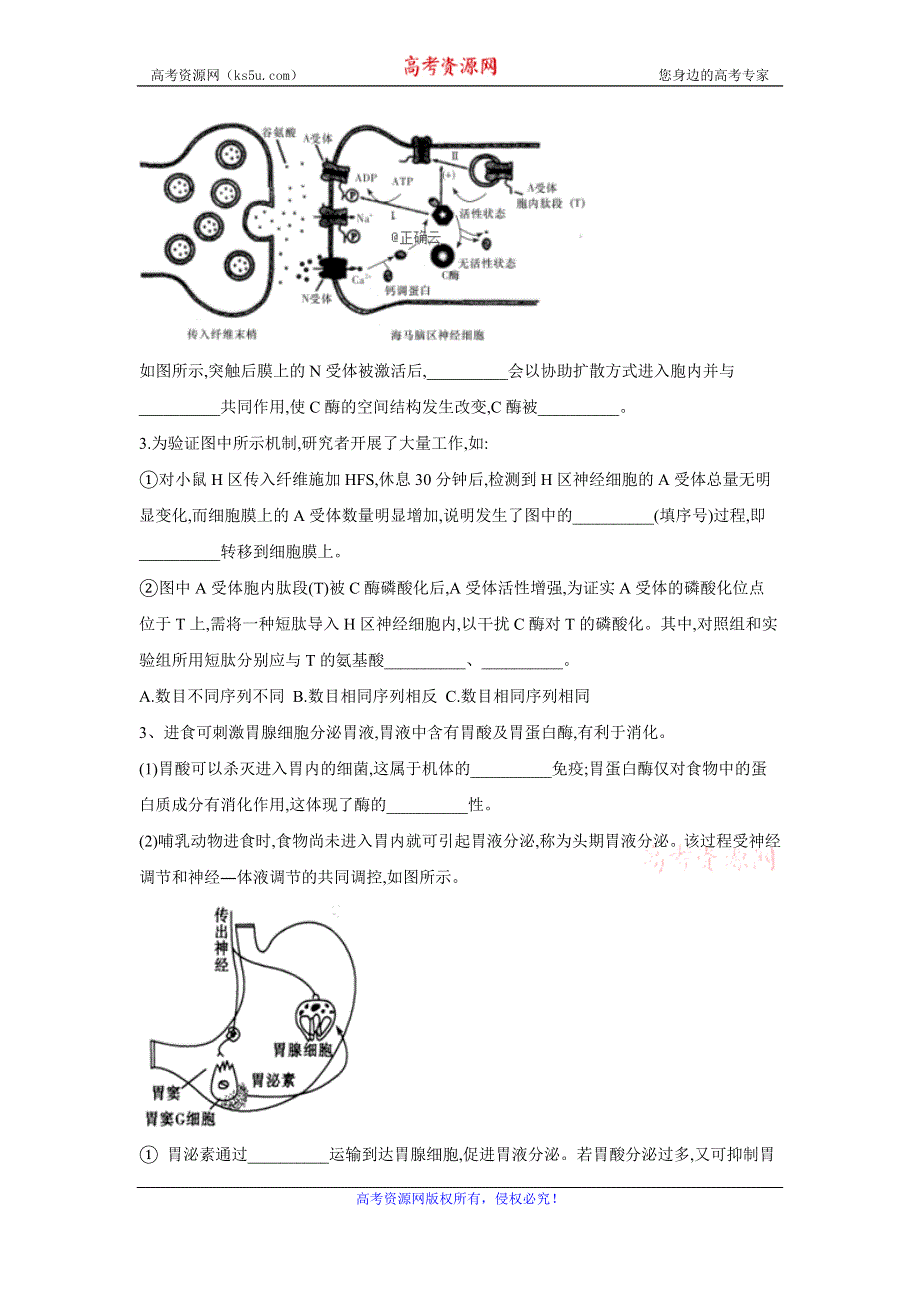 高考资源网（ks5u.com）
高考资源网
您身边的高考专家
谷氨酸
A受体
ADP
ATP
II
(+)
A受体
胞内肽段 (T)
P
Na⁺
I
活性状态
@正确云
P
无活性状态
C酶
Ca²⁺
钙调蛋白
N受体
传入纤维末梢
海马脑区神经细胞
如图所示,突触后膜上的N受体被激活后,__________会以协助扩散方式进入胞内并与
__________共同作用,使C酶的空间结构发生改变,C酶被__________。
3.为验证图中所示机制,研究者开展了大量工作,如:
①对小鼠H区传入纤维施加HFS,休息30分钟后,检测到H区神经细胞的A受体总量无明
显变化,而细胞膜上的A受体数量明显增加,说明发生了图中的__________(填序号)过程,即
__________转移到细胞膜上。
②图中A受体胞内肽段(T)被C酶磷酸化后,A受体活性增强,为证实A受体的磷酸化位点
位于T上,需将一种短肽导入H区神经细胞内,以干扰C酶对T的磷酸化。其中,对照组和实
验组所用短肽分别应与T的氨基酸__________、__________。
A.数目不同序列不同 B.数目相同序列相反 C.数目相同序列相同
3、进食可刺激胃腺细胞分泌胃液,胃液中含有胃酸及胃蛋白酶,有利于消化。
(1)胃酸可以杀灭进入胃内的细菌,这属于机体的__________免疫;胃蛋白酶仅对食物中的蛋
白质成分有消化作用,这体现了酶的__________性。
(2)哺乳动物进食时,食物尚未进入胃内就可引起胃液分泌,称为头期胃液分泌。该过程受神经
调节和神经—体液调节的共同调控,如图所示。
高考资源网
传出神经
胃腺细胞
胃泌素
胃窦
胃窦G细胞
① 胃泌素通过__________运输到达胃腺细胞,促进胃液分泌。若胃酸分泌过多,又可抑制胃
高考资源网版权所有，侵权必究！